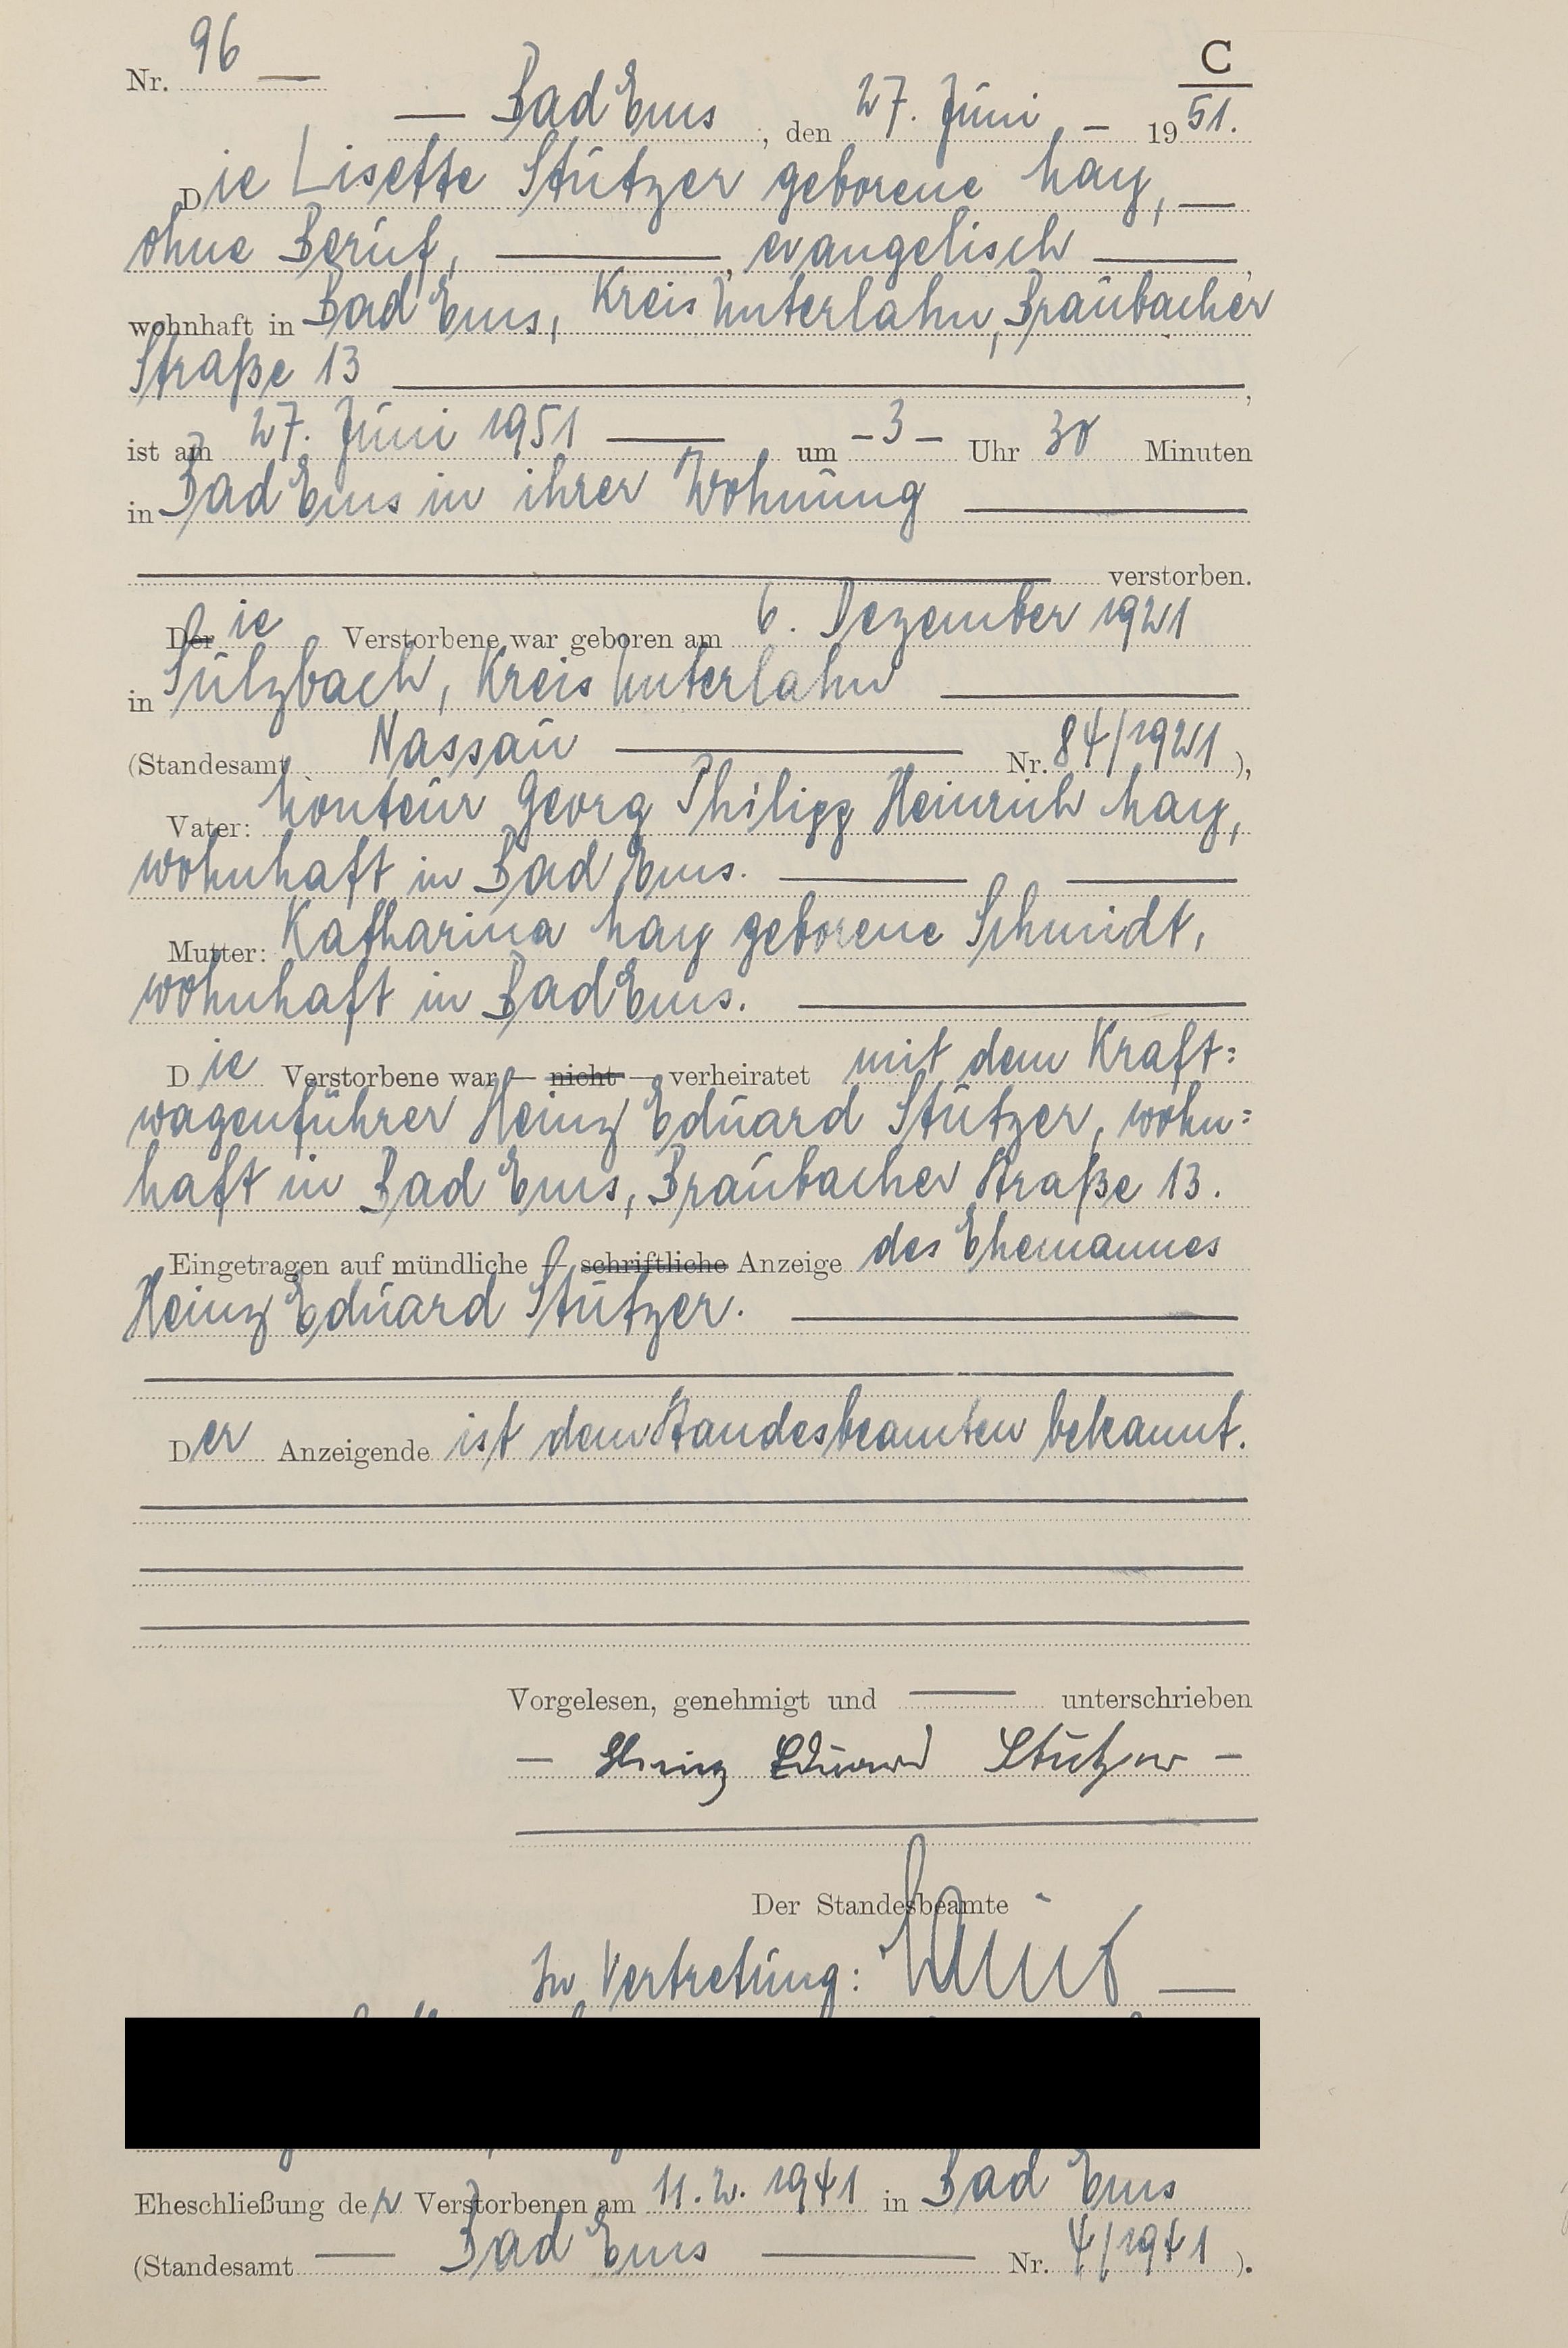 C
Nr. 96 —
— Bad Ems, den 27. Juni – 1951.
Die Lisette Stützer geborene May, —
ohne Beruf, —, evangelisch —,
wohnhaft in Bad Ems, Kreis Unterlahn, Braubacher
Straße 13 —,
ist am 27. Juni 1951 — um – 3 – Uhr 30 Minuten
in Bad Ems in ihrer Wohnung —
— verstorben.
Der ie Verstorbene war geboren am 6. Dezember 1921
in Sulzbach, Kreis Unterlahn —
(Standesamt Nassau — Nr. 84/1921),
Vater: Monteur Georg Philipp Heinrich May,
wohnhaft in Bad Ems. — —
Mutter: Katharina May geborene Schmidt,
wohnhaft in Bad Ems. —
Die Verstorbene war — nicht — verheiratet mit dem Kraft=
wagenführer Heinz Eduard Stützer, wohn=
haft in Bad Ems, Braubacher Straße 13.
Eingetragen auf mündliche — schriftliche Anzeige des Ehemannes
Heinz Eduard Stützer. —
Der Anzeigende ist dem Standesbeamten bekannt.
Vorgelesen, genehmigt und — unterschrieben
— Heinz Eduard Stützer —
Der Standesbeamte
In Vertretung:
Eheschließung der Verstorbenen am 11.2.1941 in Bad Ems
(Standesamt — Bad Ems — Nr. 4/1941).